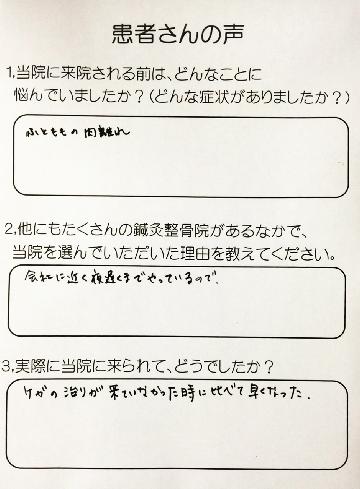 患者さんの声
1,当院に来院される前は、どんなことに
悩んでいましたか？（どんな症状がありましたか？）
ふとももの肉離れ
2,他にもたくさんの鍼灸整骨院があるなかで、
当院を選んでいただいた理由を教えてください。
会社に近く夜遅くまでやっているので、
3,実際に当院に来られて、どうでしたか？
ケガの治りが来ていなかった時に比べて早くなった.